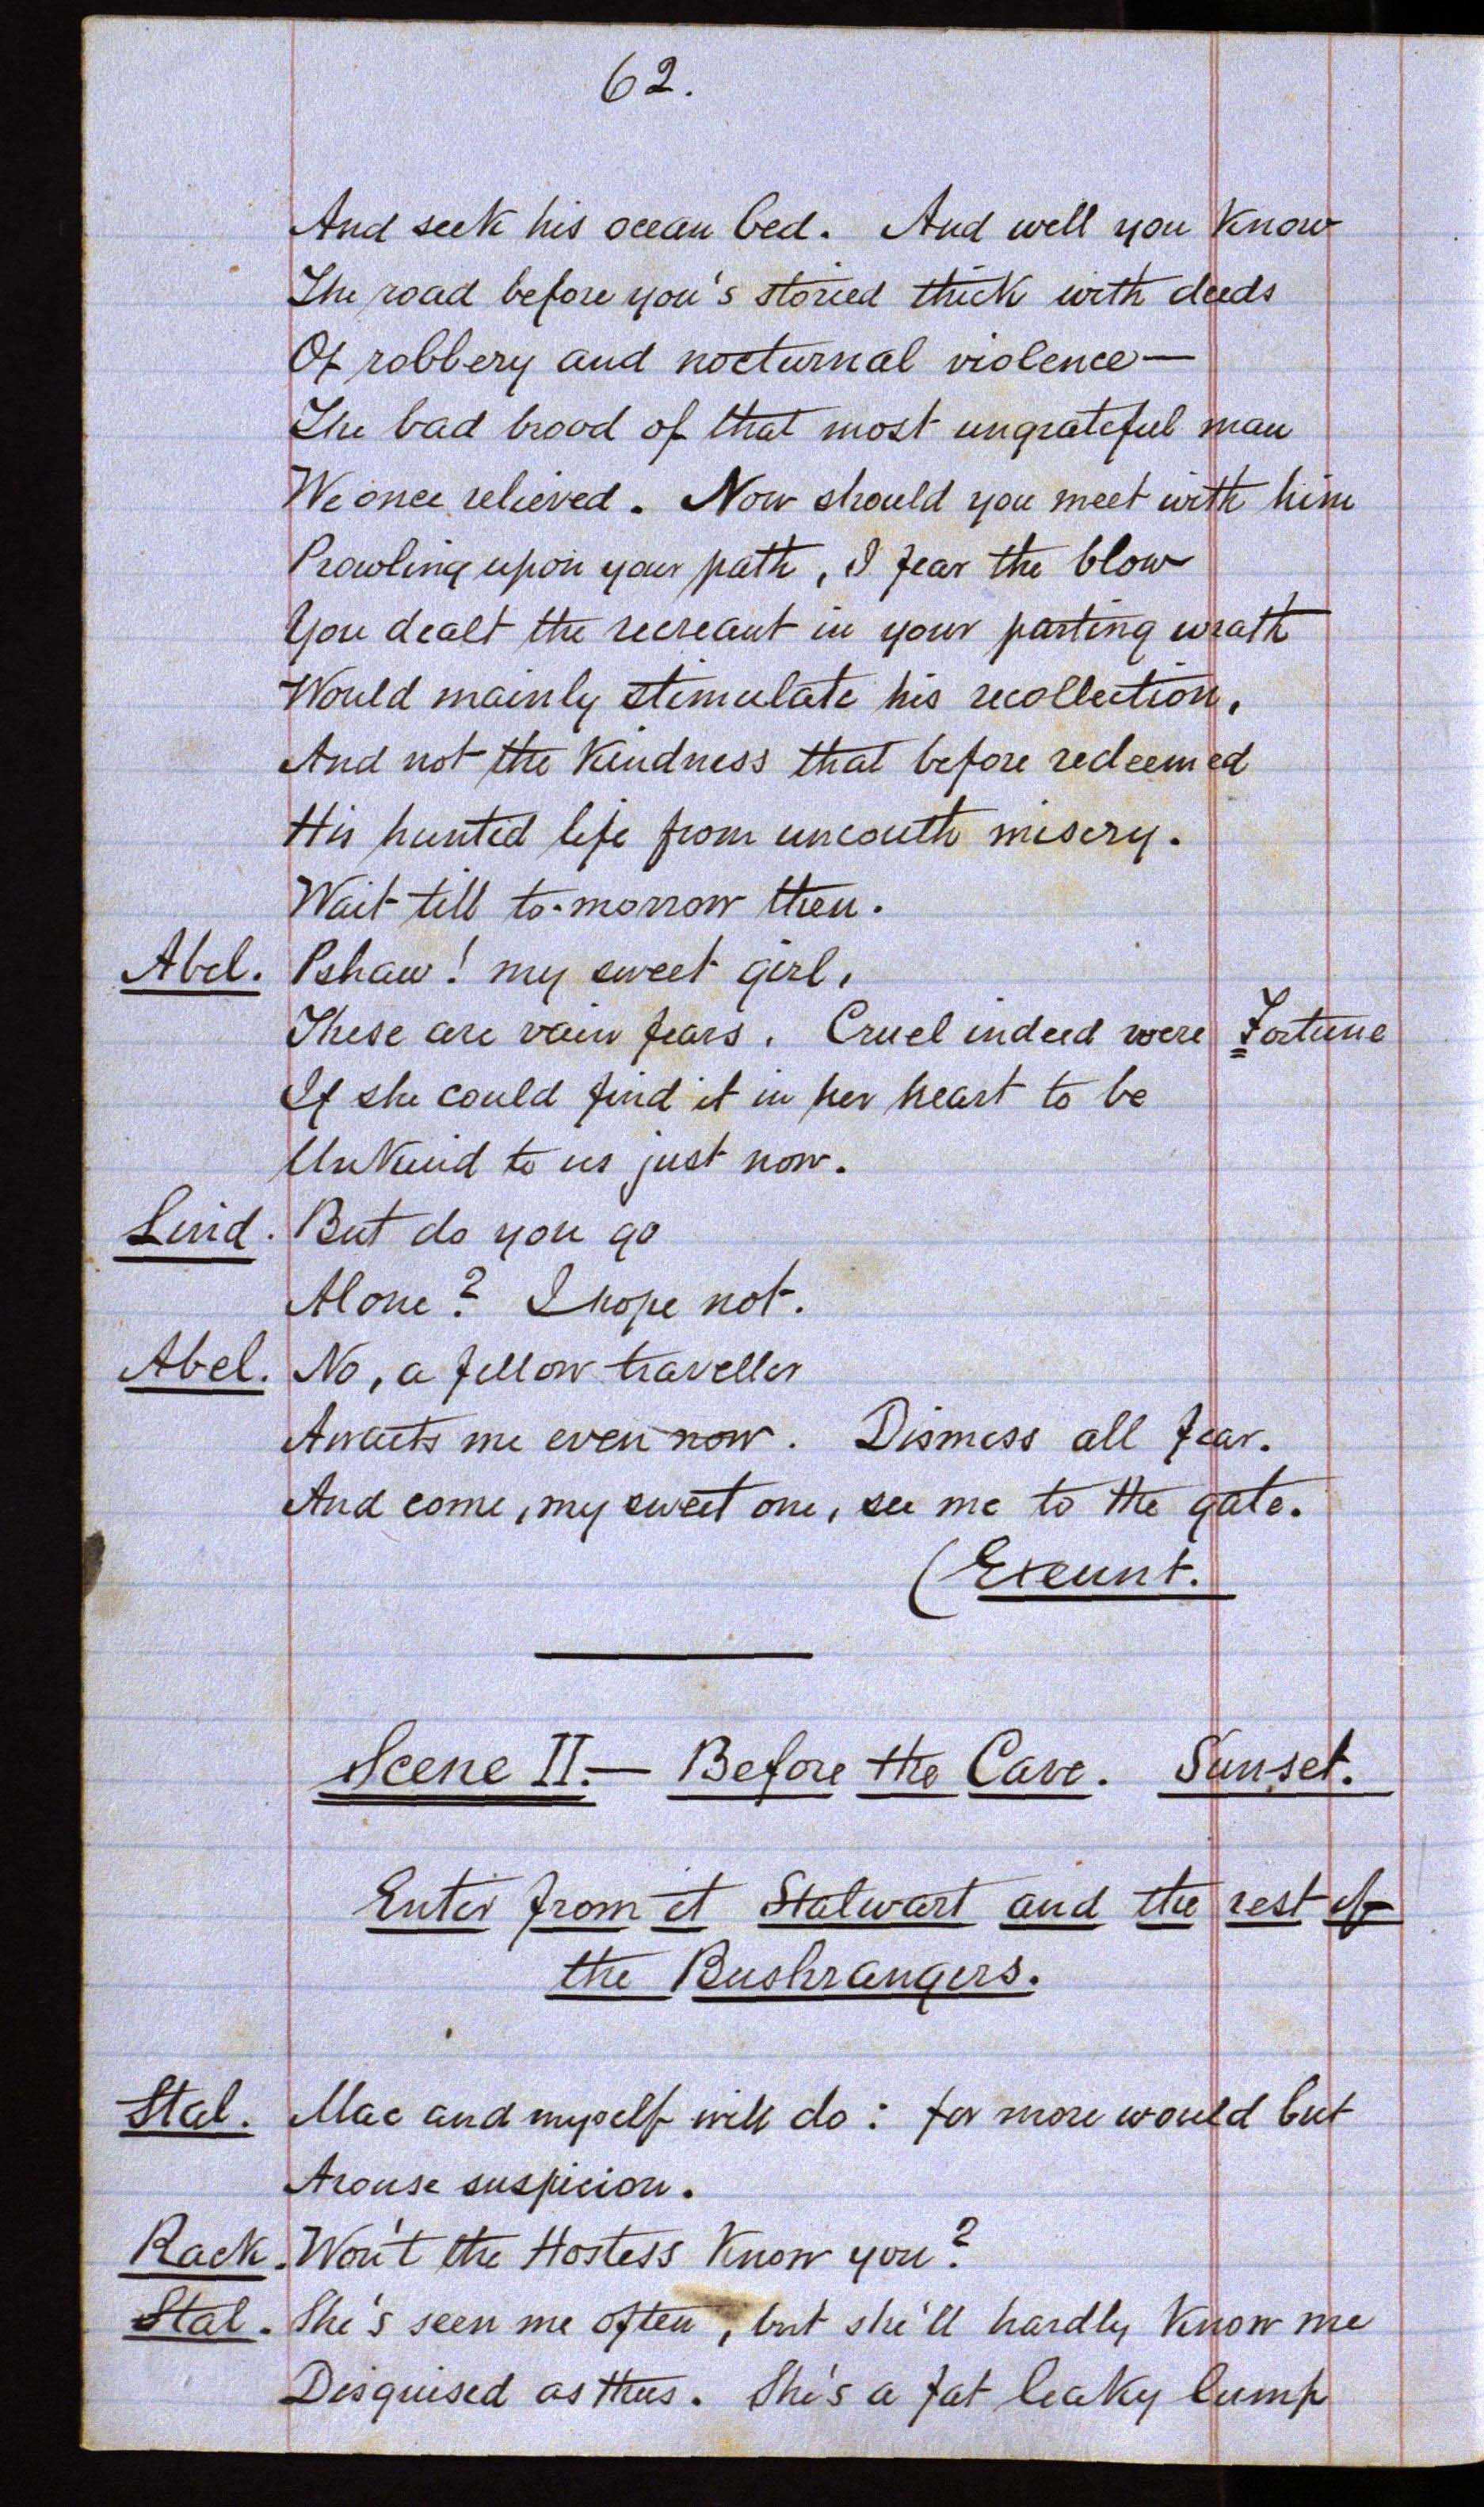 62.
And seek his ocean bed. And well you know
The road before you's storied thick with deeds
Of robbery and nocturnal violence—
The bad brood of that most ungrateful man
We once relieved. Now should you meet with him
Prowling upon your path, I fear the blow
You dealt the recreant in your parting wrath
Would mainly stimulate his recollection,
And not the kindness that before redeemed
His hunted life from uncouth misery.
Wait till to-morrow then.
Abel. Pshaw! my sweet girl,
These are vain fears. Cruel indeed were Fortune
If she could find it in her heart to be
Unkind to us just now.
Lind. But do you go
Alone? I hope not.
Abel. No, a fellow traveller
Awaits me even now. Dismiss all fear.
And come, my sweet one, see me to the gate.
(Exeunt.
Scene II.— Before the Cave. Sunset.
Enter from it Stalwart and the rest of
the Bushrangers.
Stal. Mac and myself will do: for more would but
Arouse suspicion.
Rack. Won't the Hostess know you?
Stal. She's seen me often, but she'll hardly know me
Disguised as thus. She's a fat leaky lump